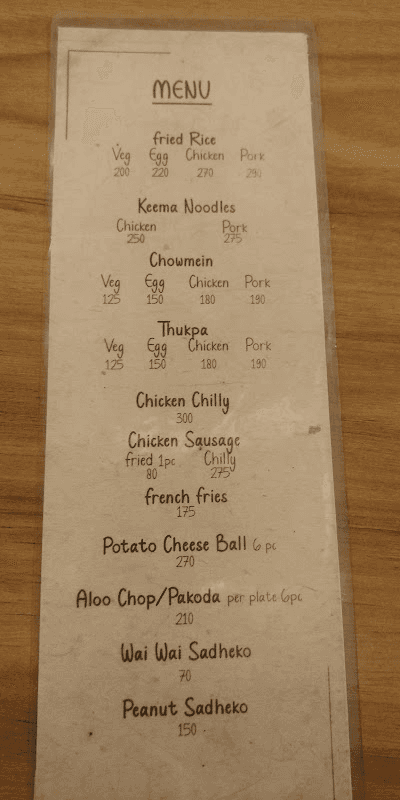 MENU
fried Rice
Veg Egg Chicken Pork
200 220 270 290
Keema Noodles
Chicken Pork
250 275
Chowmein
Veg Egg Chicken Pork
125 150 180 190
Thukpa
Veg Egg Chicken Pork
125 150 180 190
Chicken Chilly
300
Chicken Sausage
fried 1pc Chilly
80 275
french fries
175
Potato Cheese Ball 6 pc
270
Aloo Chop/Pakoda per plate 6pc
210
Wai Wai Sadheko
70
Peanut Sadheko
150